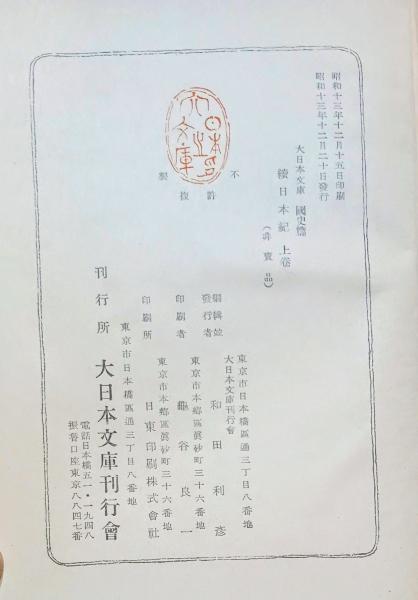 昭和十三年十二月十五日印刷
昭和十三年十二月二十日發行
大日本文庫 國史篇
續日本紀 上卷
(非賣品)
不許複製
東京市日本橋區通三丁目八番地
大日本文庫刊行會
編輯竝發行者 和田利彥
東京市本鄉區眞砂町三十六番地
印刷者 龜谷良一
東京市本鄉區眞砂町三十六番地
印刷所 日東印刷株式會社
東京市日本橋區通三丁目八番地
刊行所 大日本文庫刊行會
電話日本橋五一・一九四八
振替口座東京八八四七番